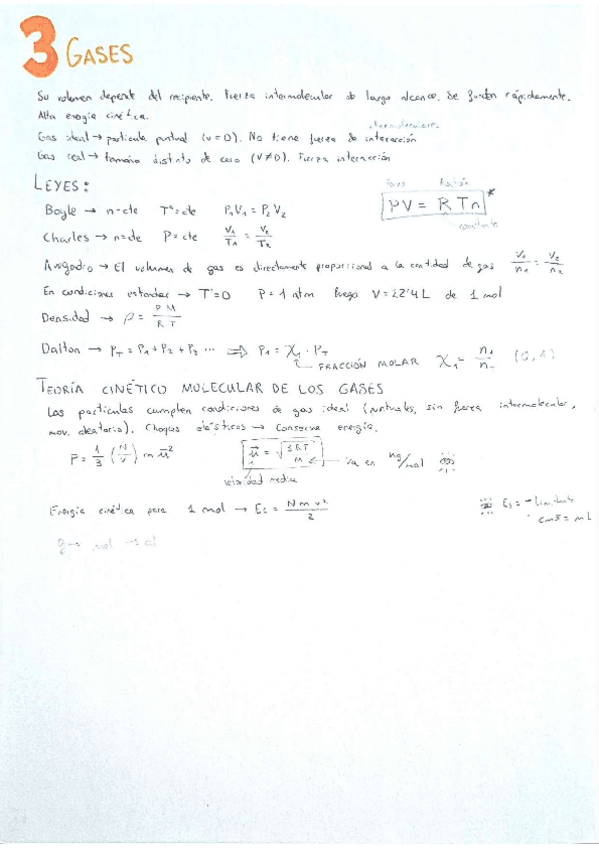 3 GASES
Su volumen depende del recipiente. Fuerza intermolecular de largo alcance. Se funden rápidamente.
Alta energía cinética.
intermoleculares
Gas ideal → partícula puntual (v=0). No tiene fuerza de interacción
Gas real → tamaño distinto de cero (V≠0). Fuerza interacción
LEYES:
PV = R T n *
constante
Boyle → n=cte Tª=cte P₁V₁ = P₂V₂
Charles → n=cte P=cte V₁/T₁ = V₂/T₂
Avogadro → El volumen de gas es directamente proporcional a la cantidad de gas V₁/n₁ = V₂/n₂
En condiciones estandar → Tª=0 P=1 atm luego V=22'4 L de 1 mol
Densidad → ρ = P M / R T
Dalton → P_T = P₁+P₂+P₃ ... ⇒ P₁ = X₁ · P_T
FRACCIÓN MOLAR X₁ = n₁/n_T (0,1)
TEORÍA CINÉTICO MOLECULAR DE LOS GASES
Las partículas cumplen condiciones de gas ideal (puntuales, sin fuerza intermolecular,
mov. aleatorio). Choques elásticos → Conserva energía.
P = 1/3 (N/V) m u² u = √(3RT/M) kg/mol
velocidad media
Energía cinética para 1 mol → Ec = N m v²/2
cm3 = mL
mol →